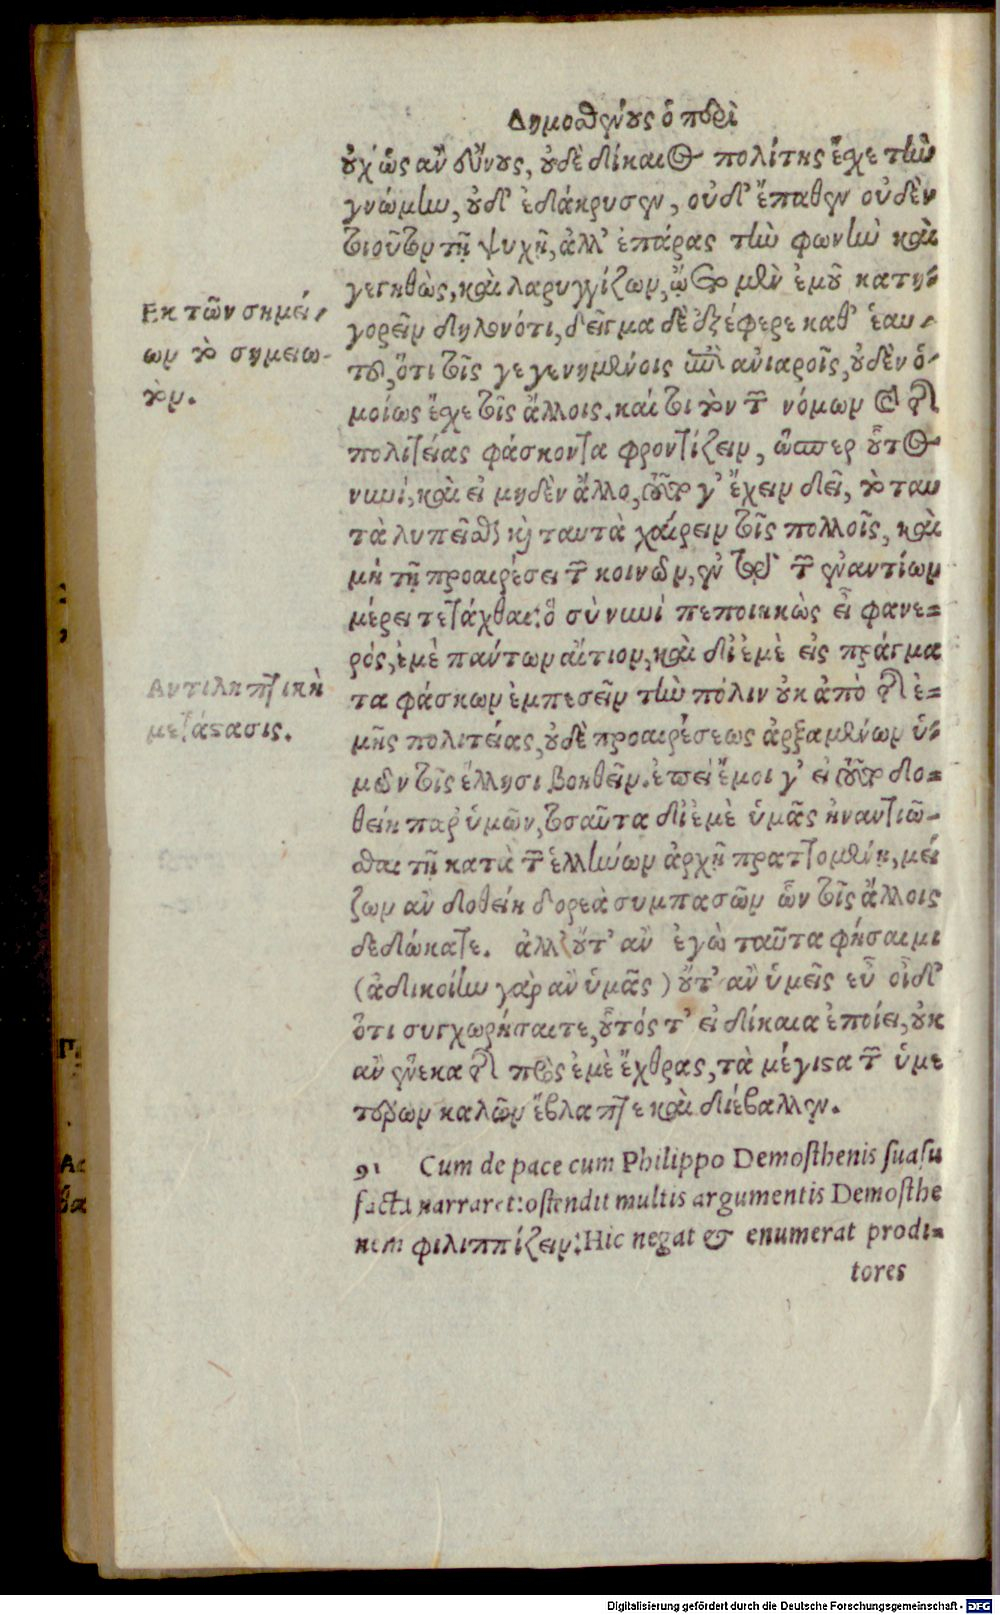 Δημοσθένους ὁ περὶ
οὐχ ὡς ἂν εὔνους, οὐδὲ δίκαιος πολίτης ἔσχε τὴν
γνώμην, οὐδ' ἐδάκρυσεν, οὐδ' ἔπαθεν οὐδὲν
τοιοῦτον τῇ ψυχῇ, ἀλλ' ἐπάρας τὴν φωνὴν καὶ
γεγηθὼς, καὶ λαρυγγίζων, ᾤετο μὲν ἐμοῦ κατη-
γορεῖν δηλονότι, δεῖγμα δὲ ἐξέφερε καθ' ἑαυ-
τοῦ, ὅτι τοῖς γεγενημένοις ἐπ' ἀνιαροῖς, οὐδὲν ὁ-
μοίως ἔσχε τοῖς ἄλλοις. καίτοι τὸν τῶν νόμων καὶ τῆς
πολιτείας φάσκοντα φροντίζειν, ὥσπερ οὗτος
νυνὶ, καὶ εἰ μηδὲν ἄλλο, τοῦτο γ' ἔχειν δεῖ, τὸ ταυ
τὰ λυπεῖσθαι καὶ ταυτὰ χαίρειν τοῖς πολλοῖς, καὶ
μὴ τῇ προαιρέσει τῶν κοινῶν, ἐν τῷ τῶν ἐναντίων
μέρει τετάχθαι: ὃ σὺ νυνὶ πεποιηκὼς εἶ φανε=
ρός, ἐμὲ πάντων αἴτιον, καὶ δι' ἐμὲ εἰς πράγμα
τα φάσκων ἐμπεσεῖν τὴν πόλιν οὐκ ἀπὸ τῆς ἐ=
μῆς πολιτείας, οὐδὲ προαιρέσεως ἀρξαμένων ὑ-
μῶν τοῖς ἕλλησι βοηθεῖν. ἐπεὶ ἔμοι γ' εἰ τοῦτο δο=
θείη παρ' ὑμῶν, τοσαῦτα δι' ἐμὲ ὑμᾶς ἠναντιῶ-
σθαι τῇ κατὰ τῶν ἑλλήνων ἀρχῇ πραττομένῃ, μεί
ζων ἂν δοθείη δορεὰ συμπασῶν ὧν τοῖς ἄλλοις
δεδώκατε. ἀλλ' οὔτ' ἂν ἐγὼ ταῦτα φήσαιμι
(ἀδικοίην γὰρ ἂν ὑμᾶς) οὔτ' ἂν ὑμεῖς εὖ οἶδ'
ὅτι συγχωρήσαιτε, οὗτός τ' εἰ δίκαια ἐποίει, οὐκ
ἂν ἕνεκα τῆς πρὸς ἐμὲ ἔχθρας, τὰ μέγιστα τῶν ὑμε
τέρων καλῶν ἔβλαπτε καὶ διέβαλλεν.
Ἐκ τῶν σημεί-
ων τὸ σημειω-
τὸν.
Αντιληπτικὴ
μετάστασις.
91 Cum de pace cum Philippo Demosthenis suasu
facta narraret: ostendit multis argumentis Demosthe
nem φιλιππίζειν: Hic negat & enumerat prodi=
tores
Digitalisierung gefördert durch die Deutsche Forschungsgemeinschaft - DFG